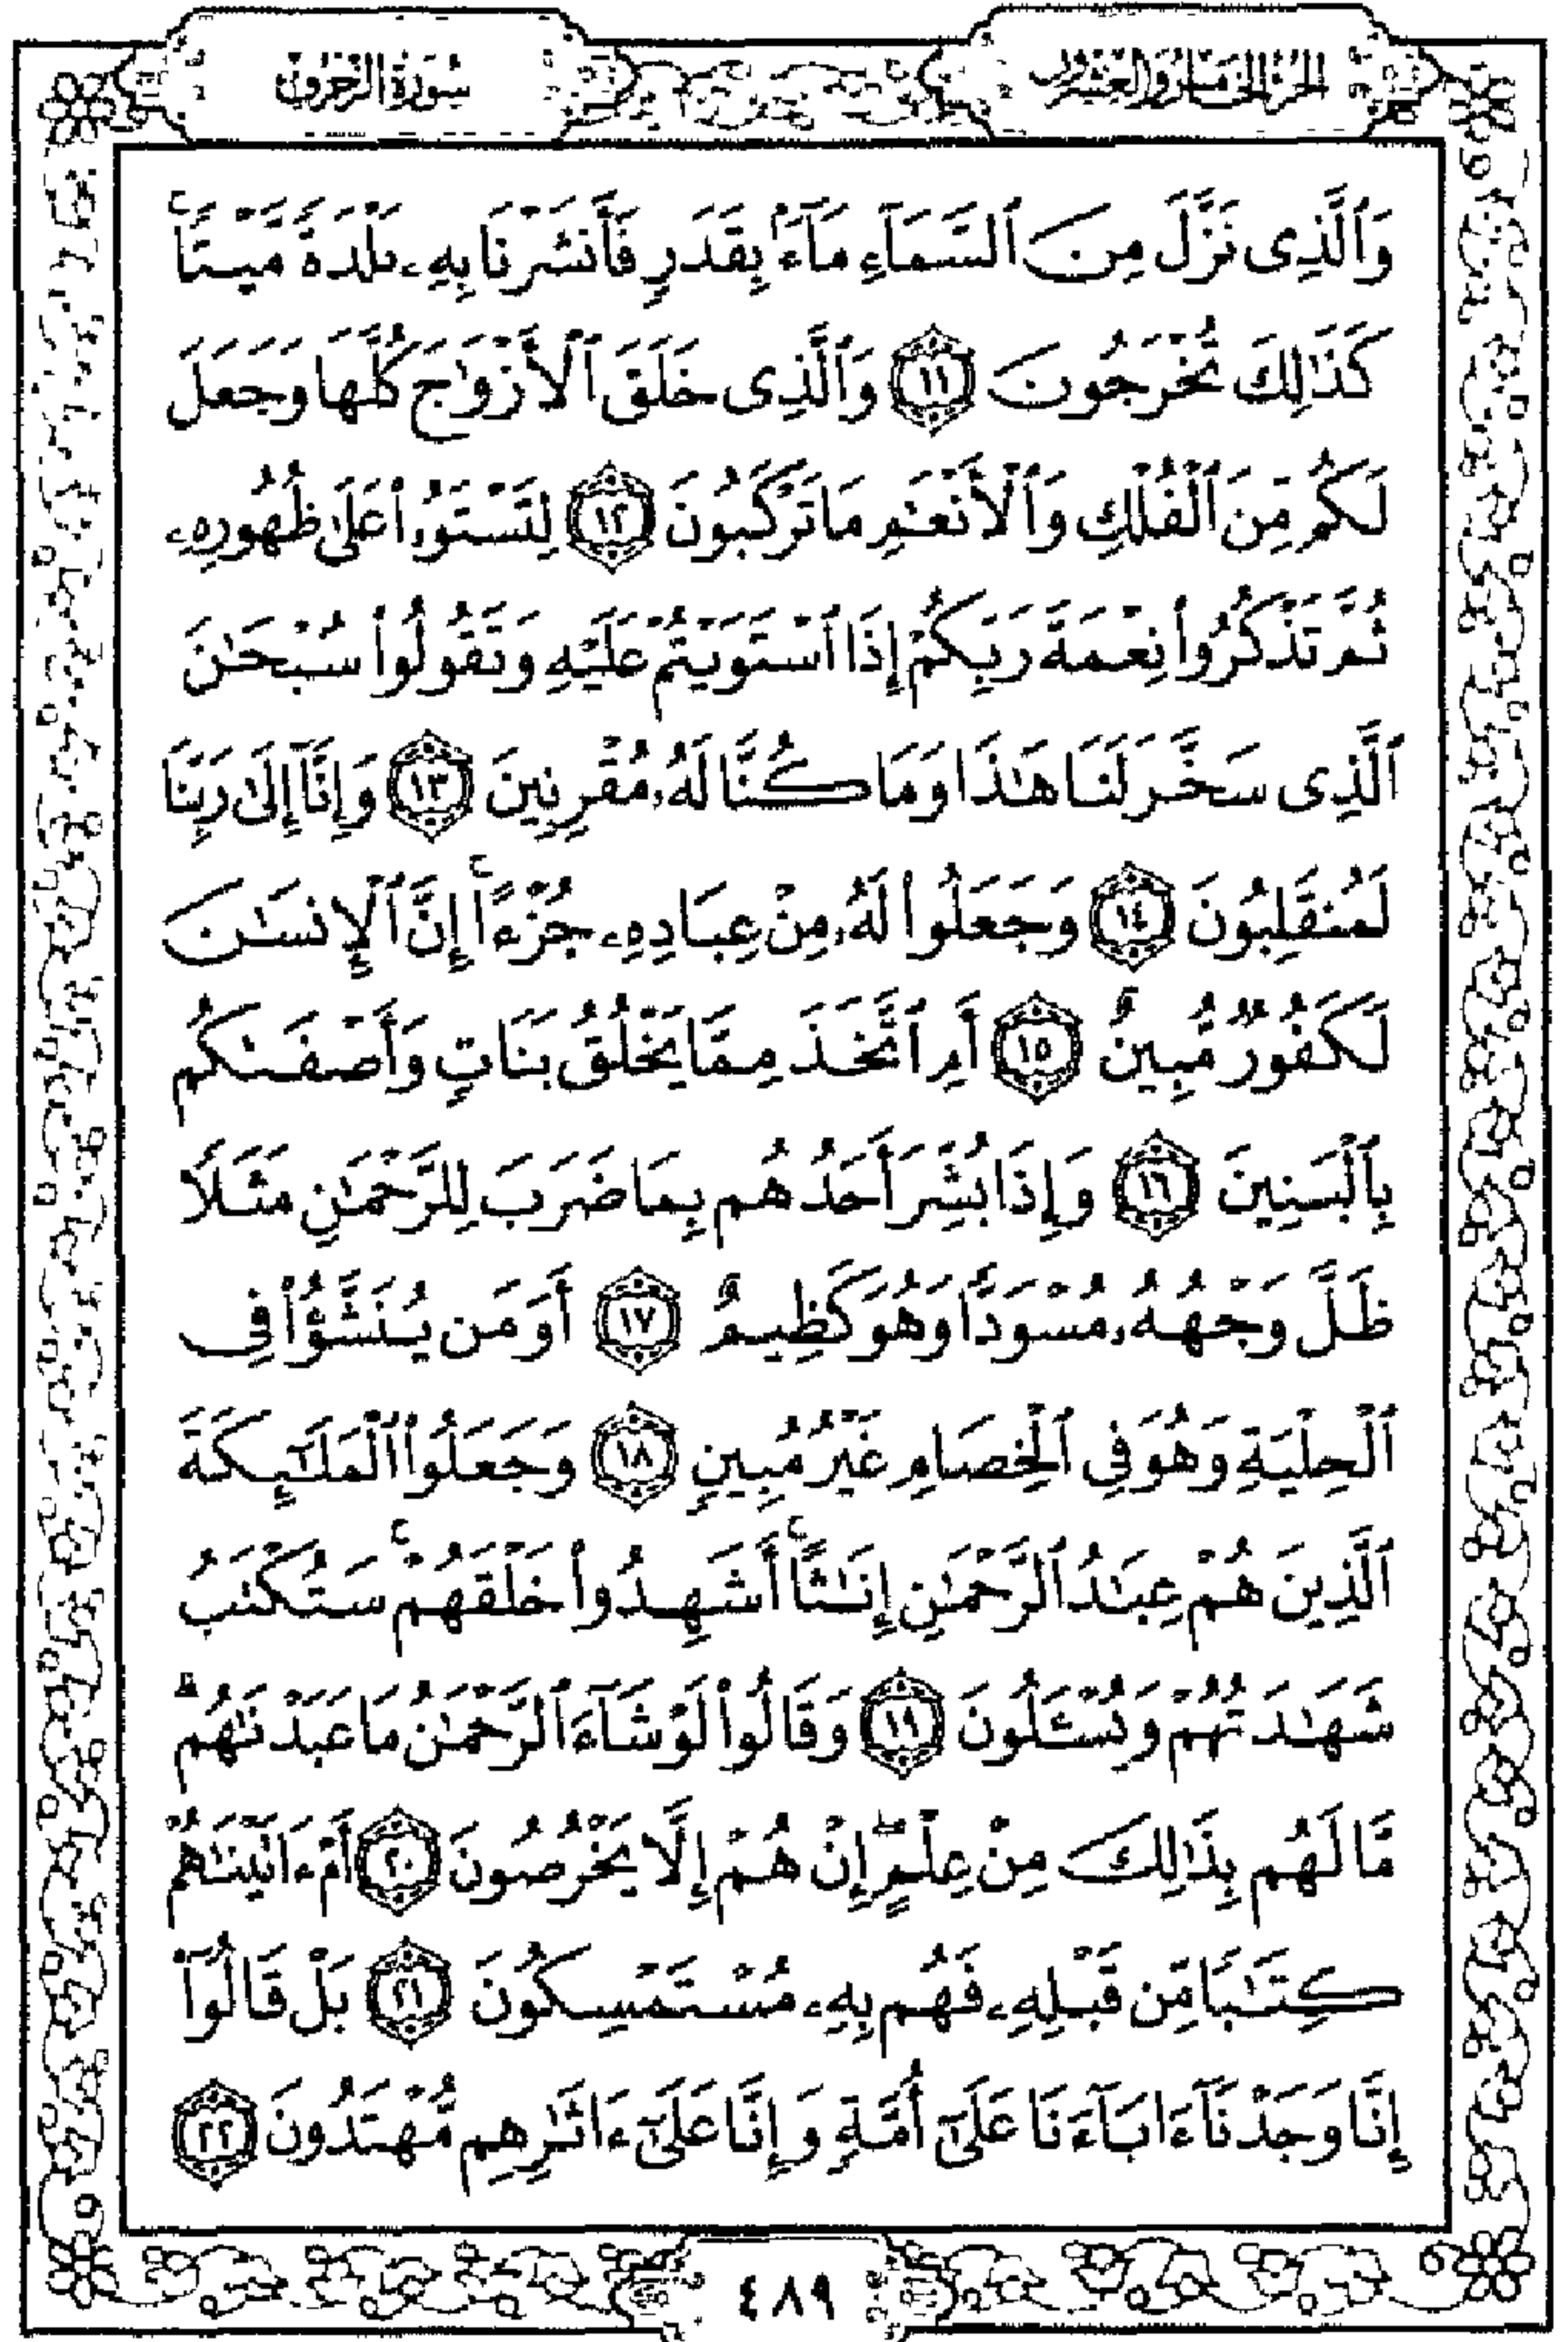 الجزء الخامس والعشرون
سورة الزخرف
وَٱلَّذِى نَزَّلَ مِنَ ٱلسَّمَآءِ مَآءًۢ بِقَدَرٍ فَأَنشَرْنَا بِهِۦ بَلْدَةً مَّيْتًا ۚ
كَذَٰلِكَ تُخْرَجُونَ ١١ وَٱلَّذِى خَلَقَ ٱلْأَزْوَٰجَ كُلَّهَا وَجَعَلَ
لَكُم مِّنَ ٱلْفُلْكِ وَٱلْأَنْعَٰمِ مَا تَرْكَبُونَ ١٢ لِتَسْتَوُۥا۟ عَلَىٰ ظُهُورِهِۦ
ثُمَّ تَذْكُرُوا۟ نِعْمَةَ رَبِّكُمْ إِذَا ٱسْتَوَيْتُمْ عَلَيْهِ وَتَقُولُوا۟ سُبْحَٰنَ
ٱلَّذِى سَخَّرَ لَنَا هَٰذَا وَمَا كُنَّا لَهُۥ مُقْرِنِينَ ١٣ وَإِنَّآ إِلَىٰ رَبِّنَا
لَمُنقَلِبُونَ ١٤ وَجَعَلُوا۟ لَهُۥ مِنْ عِبَادِهِۦ جُزْءًا ۚ إِنَّ ٱلْإِنسَٰنَ
لَكَفُورٌ مُّبِينٌ ١٥ أَمِ ٱتَّخَذَ مِمَّا يَخْلُقُ بَنَاتٍ وَأَصْفَىٰكُم
بِٱلْبَنِينَ ١٦ وَإِذَا بُشِّرَ أَحَدُهُم بِمَا ضَرَبَ لِلرَّحْمَٰنِ مَثَلًا
ظَلَّ وَجْهُهُۥ مُسْوَدًّا وَهُوَ كَظِيمٌ ١٧ أَوَمَن يُنَشَّؤُا۟ فِى
ٱلْحِلْيَةِ وَهُوَ فِى ٱلْخِصَامِ غَيْرُ مُبِينٍ ١٨ وَجَعَلُوا۟ ٱلْمَلَٰٓئِكَةَ
ٱلَّذِينَ هُمْ عِبَٰدُ ٱلرَّحْمَٰنِ إِنَٰثًا ۚ أَشَهِدُوا۟ خَلْقَهُمْ ۚ سَتُكْتَبُ
شَهَٰدَتُهُمْ وَيُسْـَٔلُونَ ١٩ وَقَالُوا۟ لَوْ شَآءَ ٱلرَّحْمَٰنُ مَا عَبَدْنَٰهُم ۗ
مَّا لَهُم بِذَٰلِكَ مِنْ عِلْمٍ ۖ إِنْ هُمْ إِلَّا يَخْرُصُونَ ٢٠ أَمْ ءَاتَيْنَٰهُمْ
كِتَٰبًا مِّن قَبْلِهِۦ فَهُم بِهِۦ مُسْتَمْسِكُونَ ٢١ بَلْ قَالُوٓا۟
إِنَّا وَجَدْنَآ ءَابَآءَنَا عَلَىٰٓ أُمَّةٍ وَإِنَّا عَلَىٰٓ ءَاثَٰرِهِم مُّهْتَدُونَ ٢٢
٤٨٩